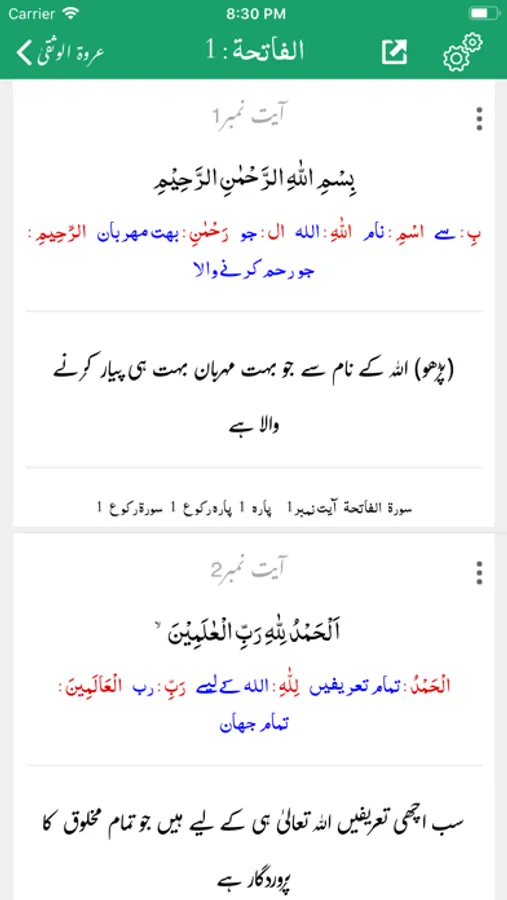 Carrier 8:30 PM
عروة الوثقیٰ الفاتحة : 1
آیت نمبر1
بِسْمِ اللّٰهِ الرَّحْمٰنِ الرَّحِیْمِ
بِ: سے اسْمِ: نام اللّٰهِ: الله ال: جو رَحْمٰنِ: بهت مهربان الرَّحِيمِ:
جو رحم کرنے والا
(پڑھو) اللہ کے نام سے جو بہت مہربان بہت ہی پیار کرنے
والا ہے
سورة الفاتحة آیت نمبر1 پاره 1 پاره رکوع 1 سورة رکوع 1
آیت نمبر2
اَلْحَمْدُ لِلّٰهِ رَبِّ الْعٰلَمِیْنَ ۙ
الْحَمْدُ: تمام تعریفیں لِلّٰهِ: الله کے لیے رَبِّ: رب الْعَالَمِينَ:
تمام جهان
سب اچھی تعریفیں اللہ تعالیٰ ہی کے لیے ہیں جو تمام مخلوق کا
پروردگار ہے